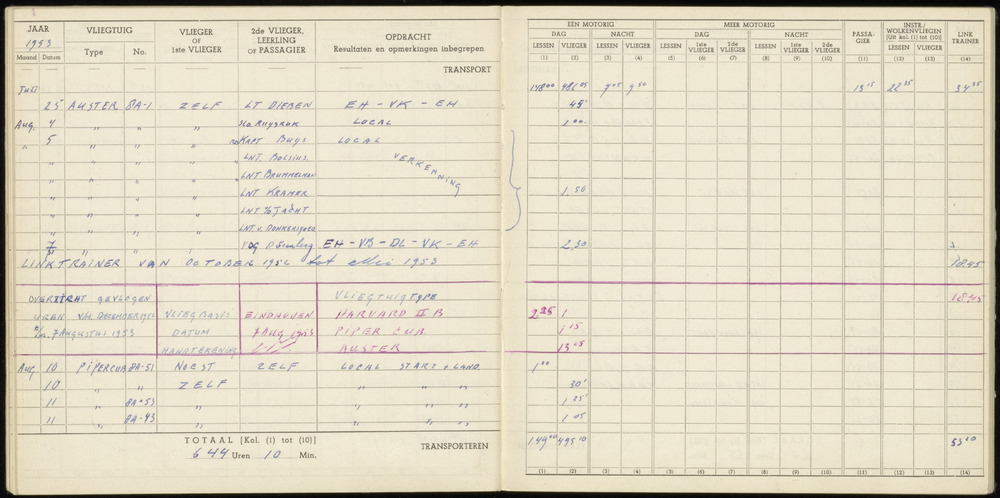 JAAR 1953
VLIEGTUIG
VLIEGER OF 1ste VLIEGER
2de VLIEGER, LEERLING OF PASSAGIER
OPDRACHT
Resultaten en opmerkingen inbegrepen
Maand Datum Type No.
TRANSPORT
EEN MOTORIG
MEER MOTORIG
DAG NACHT DAG NACHT
PASSA-GIER
INSTR./WOLKENVLIEGEN [Uit kol. (1) tot (10)]
LINK TRAINER
LESSEN VLIEGER LESSEN VLIEGER LESSEN 1ste VLIEGER 2de VLIEGER LESSEN 1ste VLIEGER 2de VLIEGER LESSEN VLIEGER
(1) (2) (3) (4) (5) (6) (7) (8) (9) (10) (11) (12) (13) (14)
Juli
25 AUSTER 8A-1 ZELF LT DIEBEN EH - VK - EH 45'
Aug. 4 " " " LOCAL 1 00
5 " " " KAPT BUYS LOCAL
" " " LNT. BOLSIUS. VERKENNING
" " " LNT BRUMMELMAN
" " " LNT KRAMER 1.50
" " " LNT
" " " LNT V. DONKERSGOED
7 " " " EH - VB - DL - VK - EH 2.30
LINKTRAINER VAN OCTOBER 1952 tot Mei 1953 18.45
OVERZICHT GEVLOGEN VLIEGTUIGTYPE 18.45
UREN DECEMBER 1952 VLIEGBASIS EINDHOVEN HARVARD II B 2 35 1
7 AUGUSTUS 1953 DATUM 7 AUG 1953 PIPER CUB 1 15
HANDTEKENING AUSTER
Aug 10 PIPERCUB 8A-51 ZELF LOCAL START + LAND. 1 00
10 " ZELF " " " 30'
11 " 8A-53 " " " " 1 25'
11 " 8A-43 " " " " 1 05
TOTAAL [Kol. (1) tot (10)]
644 Uren 10 Min.
TRANSPORTEREN
149 00 495 10
(1) (2) (3) (4) (5) (6) (7) (8) (9) (10) (11) (12) (13) (14)